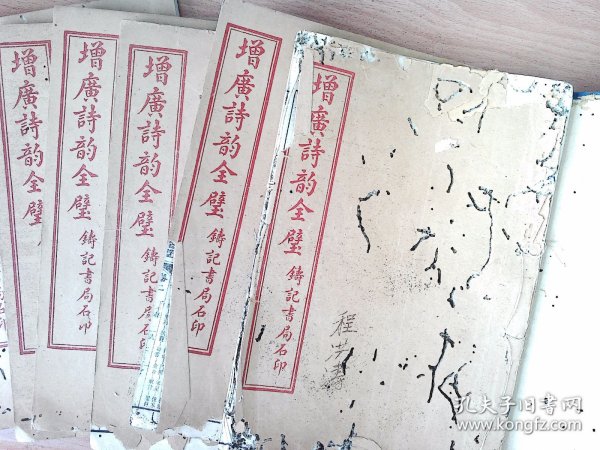 增廣詩韵全璧 鋳記書局石印
增廣詩韵全璧 鋳記書局石印
增廣詩韵全璧 鋳記書局石印
增廣詩韵全璧 鋳記書局石印
增廣詩韵全璧
程芳
孔夫子旧书网
www.kongfz.com